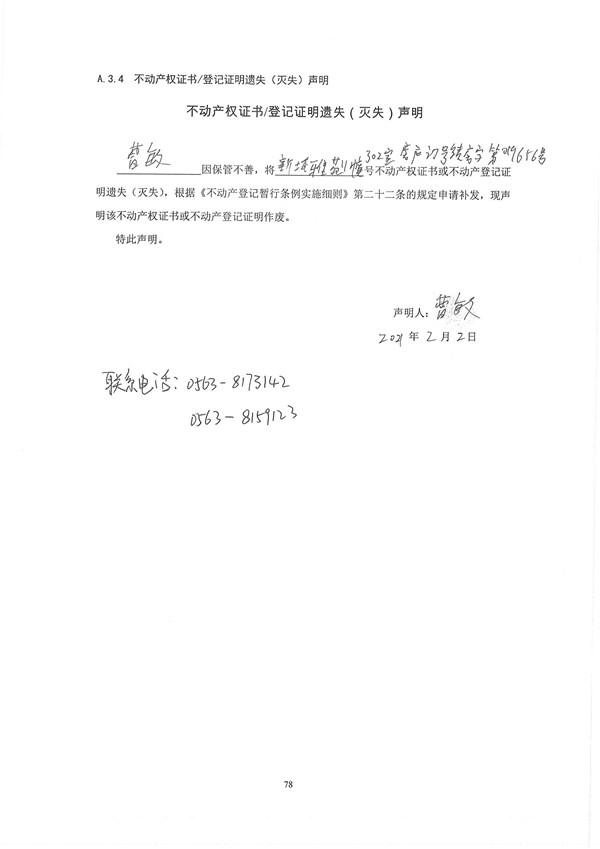 A.3.4 不动产权证书/登记证明遗失（灭失）声明
不动产权证书/登记证明遗失（灭失）声明
曹敏 因保管不善，将 新城雅苑 302室 号不动产权证书或不动产登记证
明遗失（灭失），根据《不动产登记暂行条例实施细则》第二十二条的规定申请补发，现声
明该不动产权证书或不动产登记证明作废。
特此声明。
声明人：曹敏
2021 年 2 月 2 日
联系电话：0563-8173142
0563-8159123
78